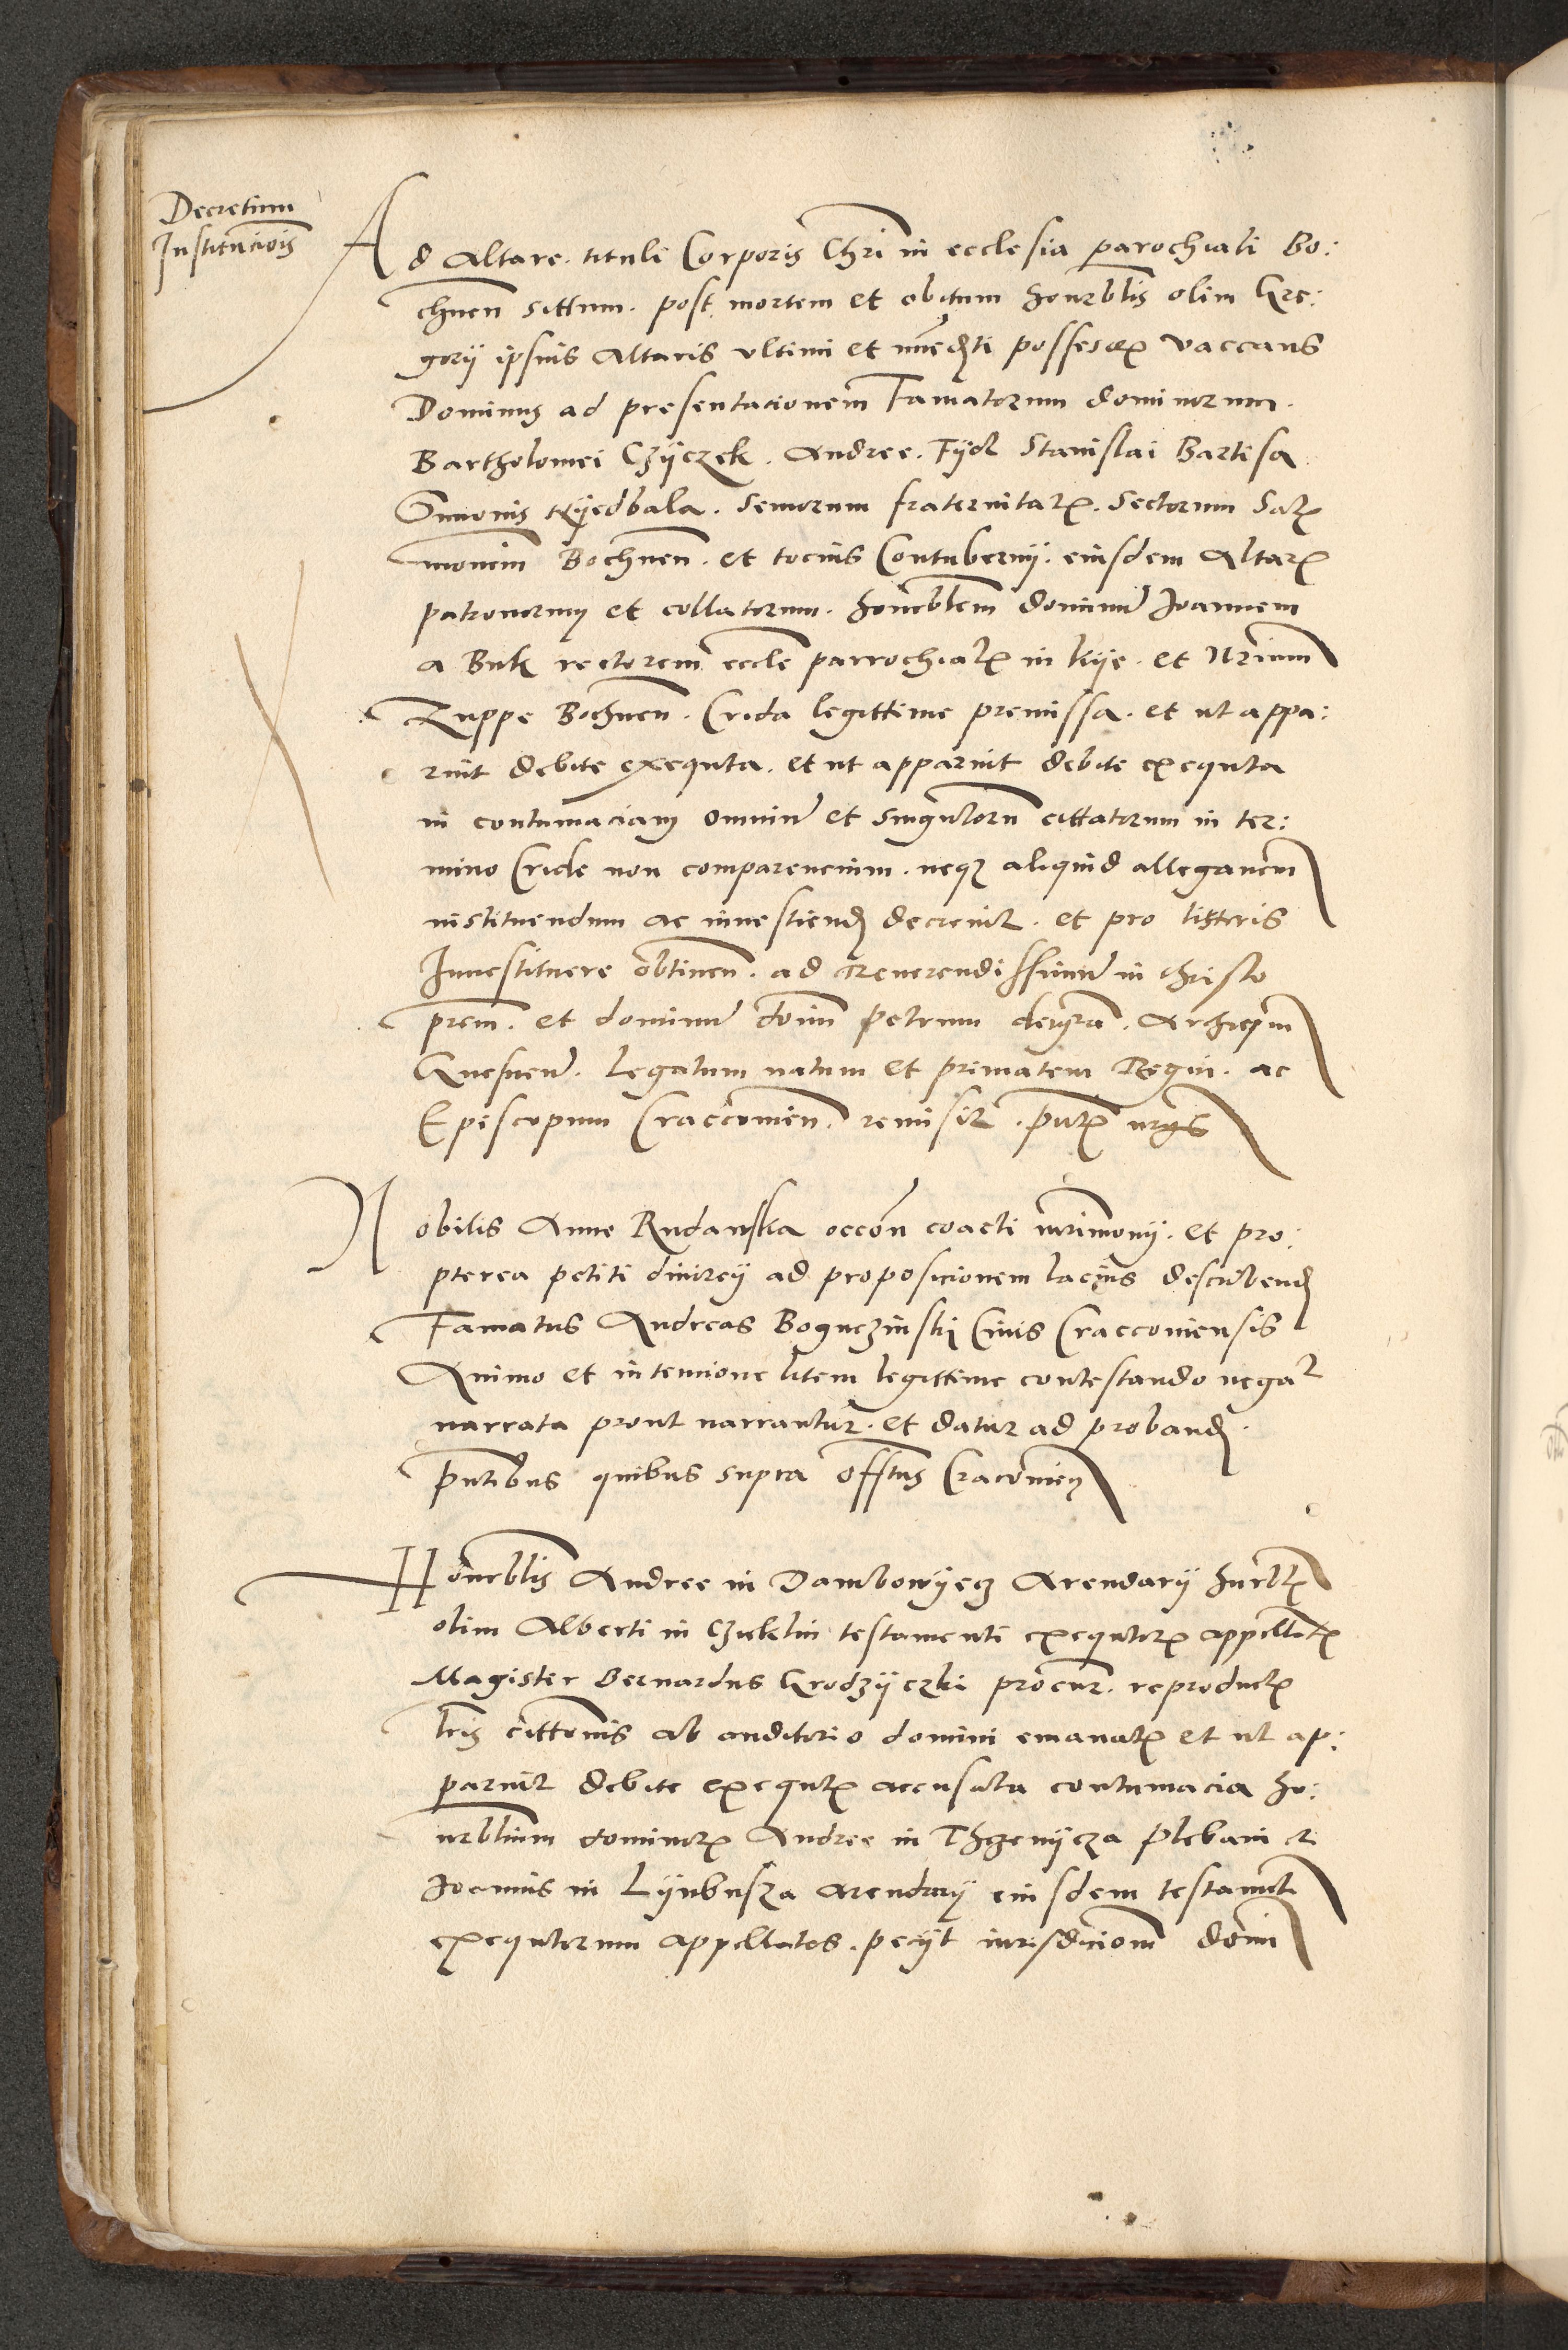 Decretum
Institucionis
Ad Altare tituli Corporis Chri in ecclesia parochiali Bo:
chnen sittum. post mortem et obitum honrblis olim Gre:
gorij ipsius Altaris vltimi et immedti possesoris vaccans
Dominus ad presentacionem Famatorum dominorum.
Bartholomei Czyczek. Andree. Fydl Stanislai Bartisa
Simonis Nyedbala. Seniorum fraternitatis. Sectorum Salis
montium Bochnen. et tocius Contubernij. eiusdem Altaris
patronorum et collatorum. honrblem dominum Joannem
a Buk rectorem eccle parrochialis in kije. et
Zuppe Bochnen. Crida legittime premissa. et ut appa:
ruit debite exequta. et ut apparuit debite exequta
in contumaciam omnium et singulorum cittatorum in ter:
mino Cride non comparencium. neque aliquid allegancium
instituendum ac inuestiend decreuit. et pro litteris
Inuestiture obtinen. ad Reuerendissimum in christo
prem. et dominum donum Petrum dei gra. Archiepm
Gnesnen. Legatum natum et primatem Regni. ac
Episcopum Craccouien. remisit. pntibus
Nobilis Anne Rudanska occon coacti mrimonij. et pro:
pterea petiti diuorcij ad proposicionem lacius describend
Famatus Andreas Boguczinskij Ciuis Craccouiensis
Animo et intencione litem legittime contestando negat
narrata prout narrantur. et datur ad proband.
pntibus quibus supra offitus Cracouien
Honrblis Andree in Dambowyecz Arendarij hnrblis
olim Alberti in Czieklin testamenti exequtoris appellatis
Magister Bernardus Grodzyczki procur. reproductis
lris cittonis ab auditorio domini emanatis et ut ap:
paruit debite exequtis accusata contumacia ho:
nrblium dominorum Andree in Thrzcinycza Plebani et
Joannis in Lijubusza arendarij eiusdem testamenti
exequtorum appellatos. pecijt iurisdicionem domini